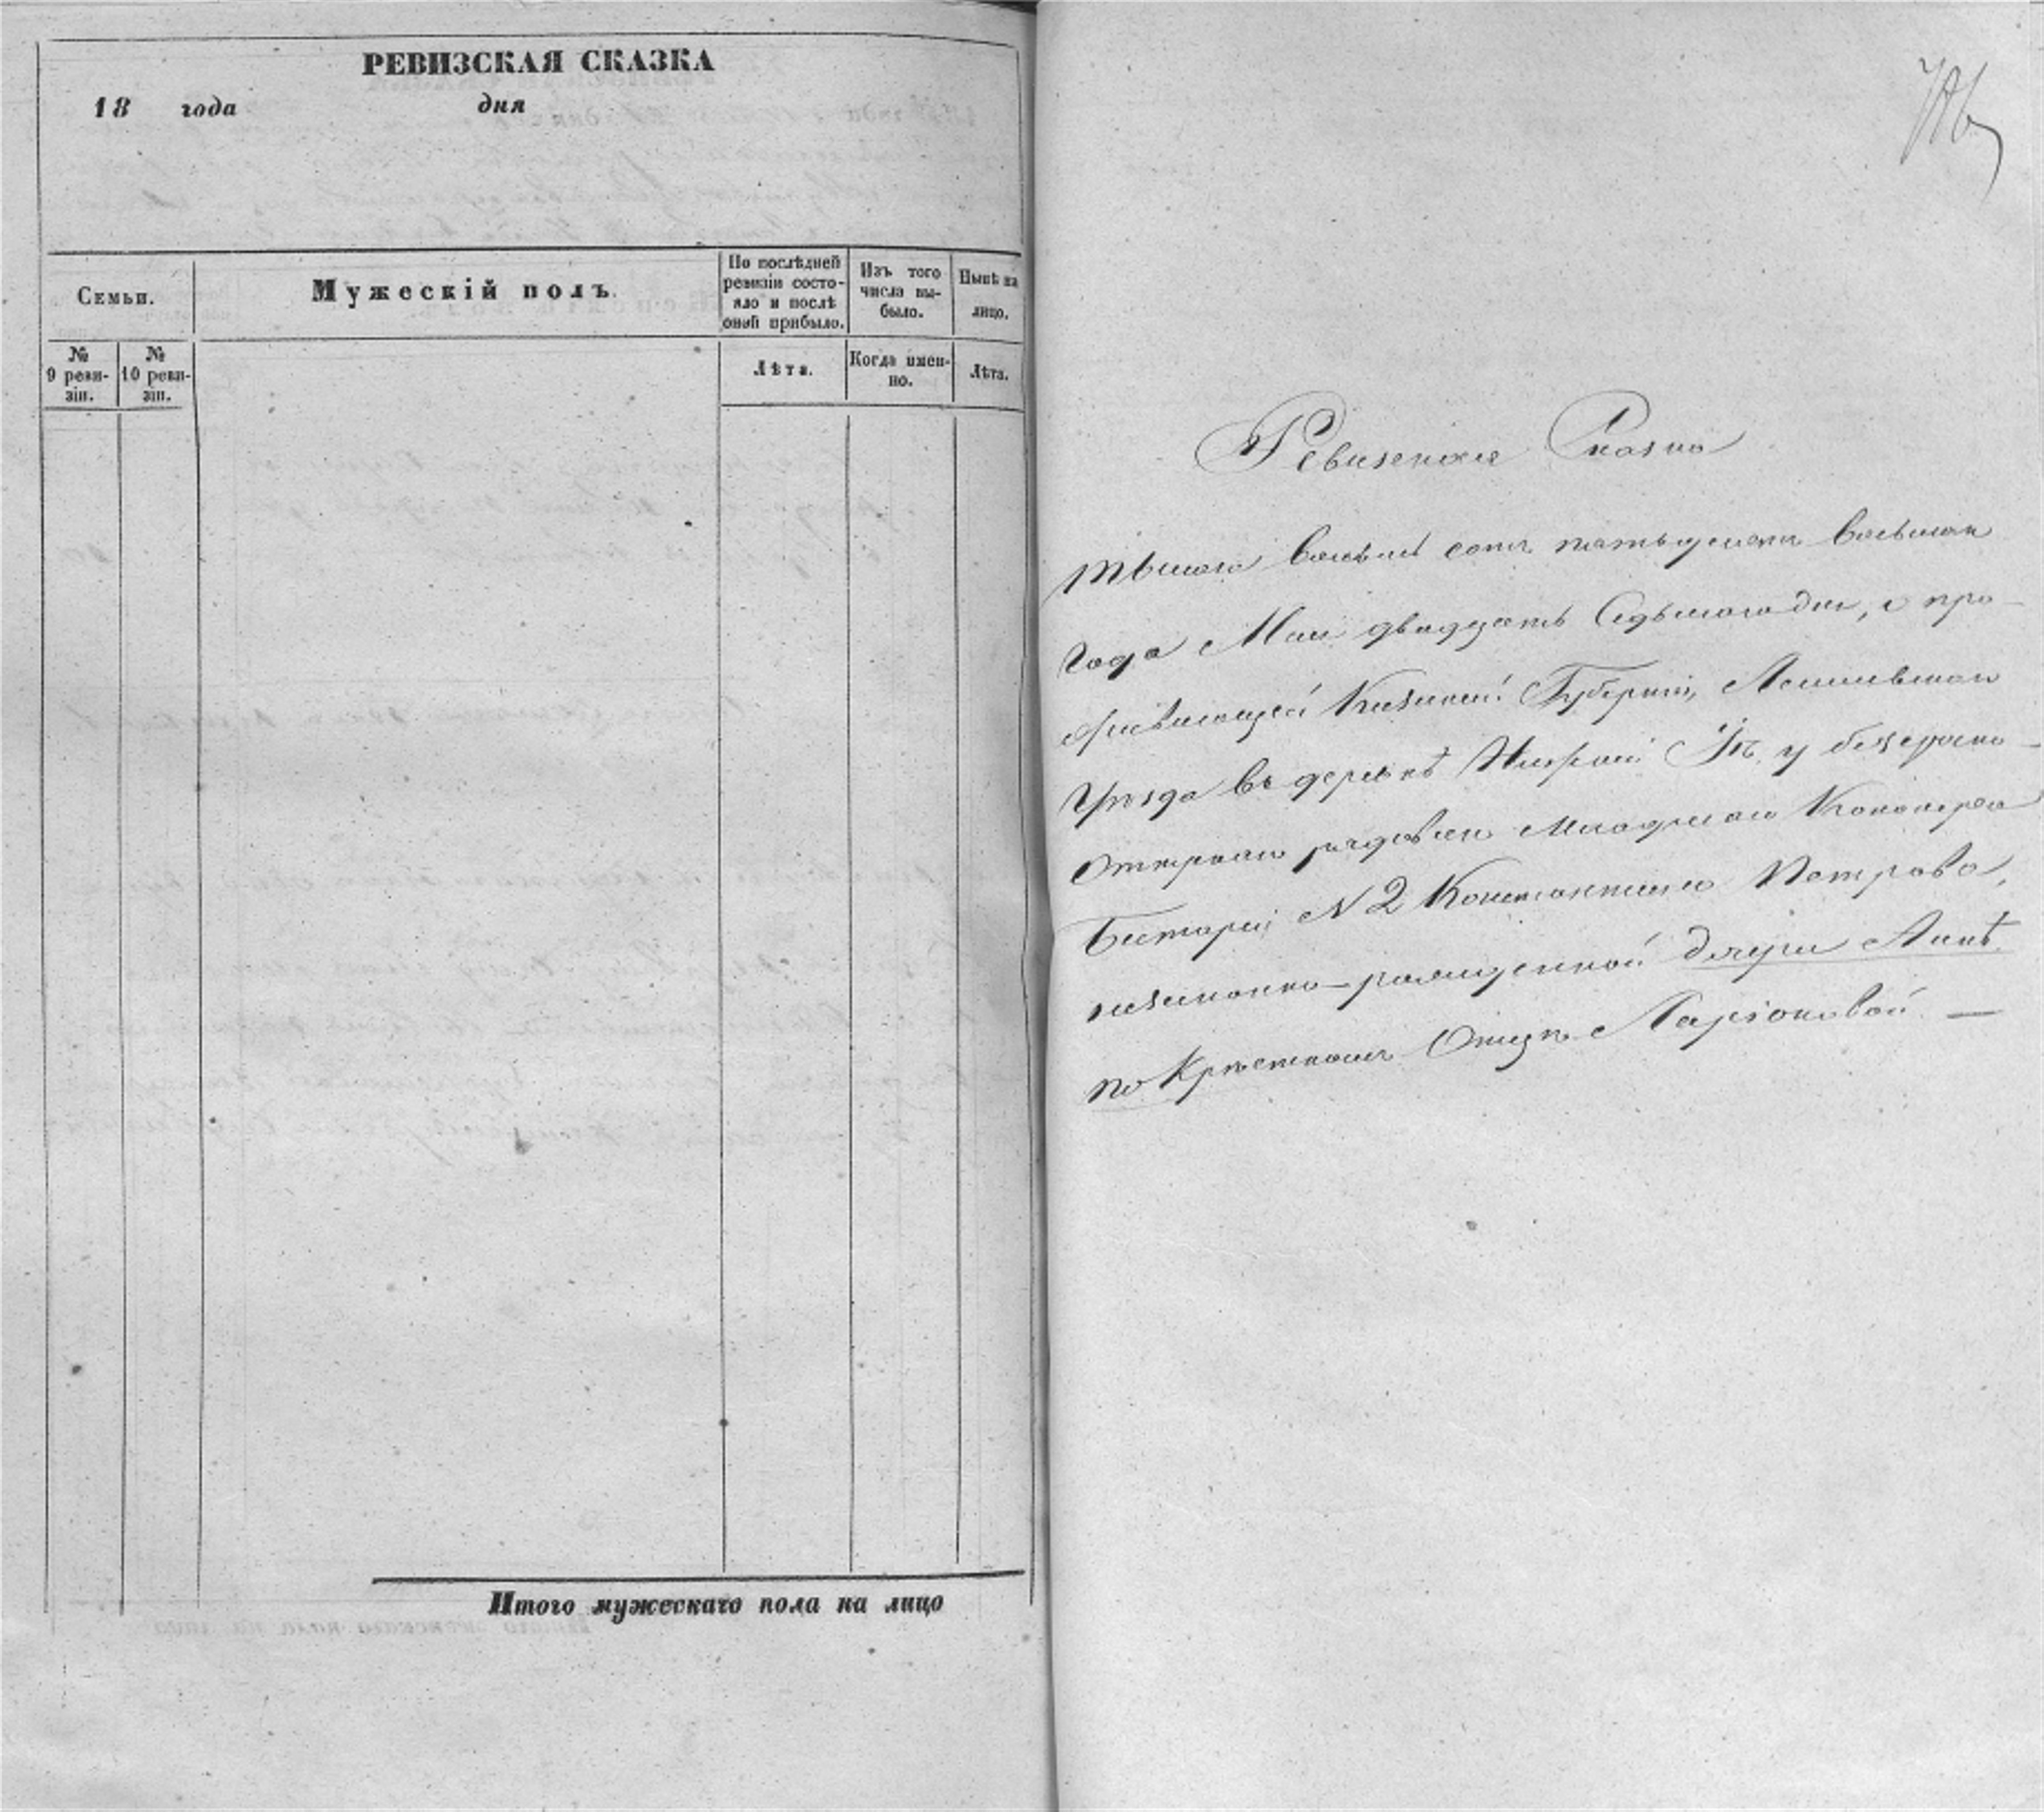 РЕВИЗСКАЯ СКАЗКА
18 года дня
Семьи.
Мужескій полъ.
По послѣдней ревизіи состояло и послѣ оной прибыло.
Изъ того числа выбыло.
Нынѣ на лицо.
№ 9 ревизіи.
№ 10 ревизіи.
Лѣта.
Когда именно.
Лѣта.
Итого мужескаго пола на лицо
Ревизская Сказка
Тысяча восемь сотъ пятьдесятъ восьмаго
года Мая двадцать Седьмого дня, о про-
живающей Казанской Губерніи, Лаишевскаго
Уѣзда въ деревнѣ у безсрочно-
отпускнаго рядоваго
Батареи N 2 Константина Петрова,
незаконно-рожденной дочери Аннѣ
по Крѣстномъ Отцѣ Ларіоновой. —